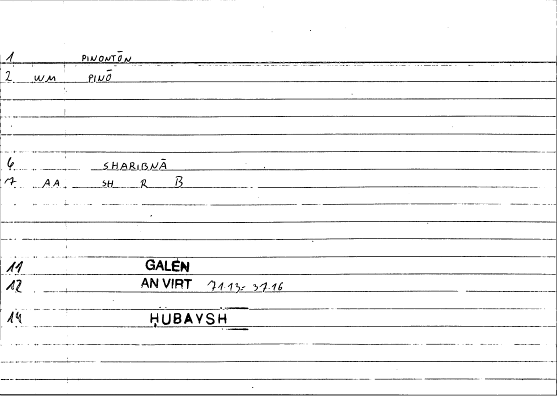 1 PINONTŌN
2 WM PINŌ
6 SHARIBNĀ
7 AA SH R B
11 GALEN
12 AN VIRT 71.13- 37.16
14 ḤUBAYSH